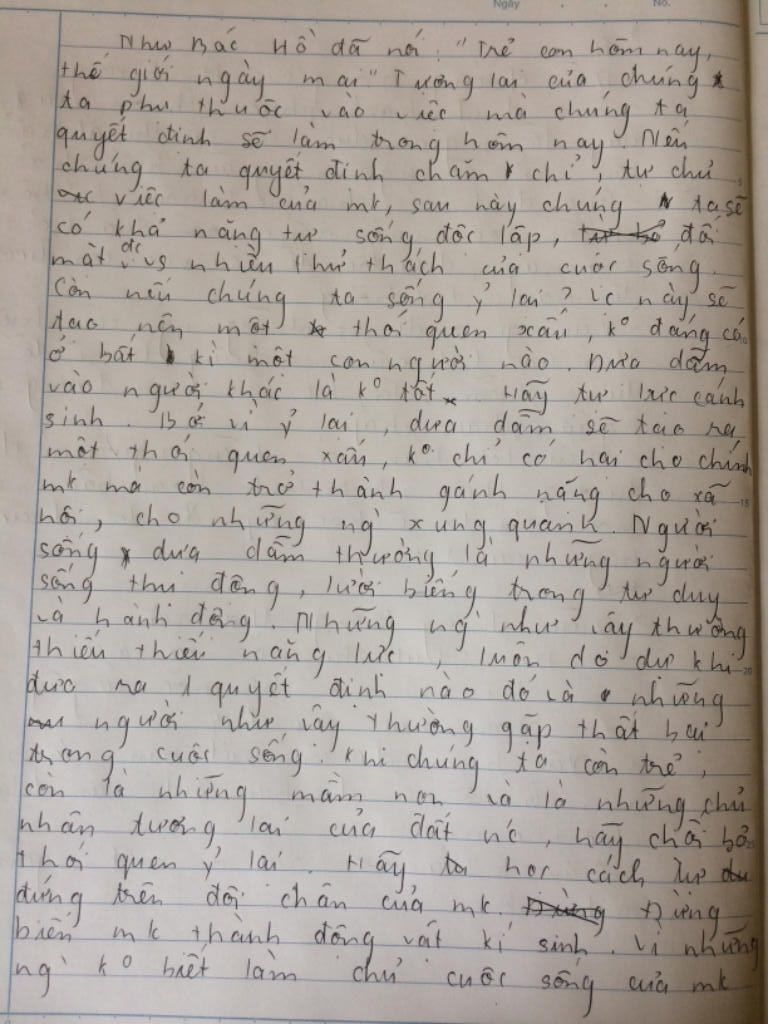 Ngày No.
Như Bác Hồ đã nói: "Trẻ con hôm nay,
thế giới ngày mai" Tương lai của chúng
ta phụ thuộc vào việc mà chúng ta
quyết định sẽ làm trong hôm nay. Nếu
chúng ta quyết định chăm chỉ, tự chủ
việc làm của mk, sau này chúng ta sẽ
có khả năng tự sống độc lập, đối
mặt đc vs nhiều thử thách của cuộc sống.
Còn nếu chúng ta sống ỷ lại? Vc này sẽ
tạo nên một thói quen xấu, k° đáng có
ở bất kì một con người nào. Dựa dẫm
vào người khác là k° tốt. Hãy tự lực cánh
sinh. Bởi vì ỷ lại, dựa dẫm sẽ tạo ra
một thói quen xấu, k° chỉ có hại cho chính
mk mà còn trở thành gánh nặng cho xã
hội, cho những ng` xung quanh. Người
sống dựa dẫm thường là những người
sống thụ động, lười biếng trong tư duy
và hành động. Những ng` như vậy thường
thiếu thiếu năng lực, luôn do dự khi
đưa ra 1 quyết định nào đó và những
người như vậy thường gặp thất bại
trong cuộc sống. Khi chúng ta còn trẻ,
còn là những mầm non và là những chủ
nhân tương lai của đất nc, hãy chối bỏ
thói quen ỷ lại. Hãy học cách tự
đứng trên đôi chân của mk. Đừng
biến mk thành động vật kí sinh. Vì những
ng` k° biết làm chủ cuộc sống của mk